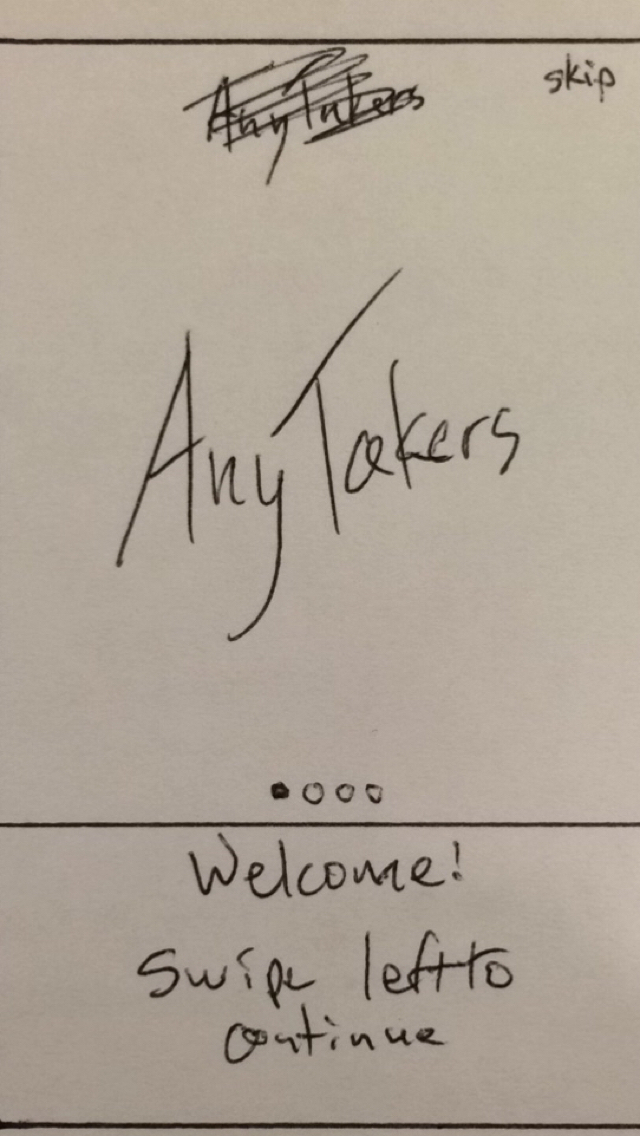 skip
AnyTakers
AnyTakers
Welcome!
Swipe left to
continue